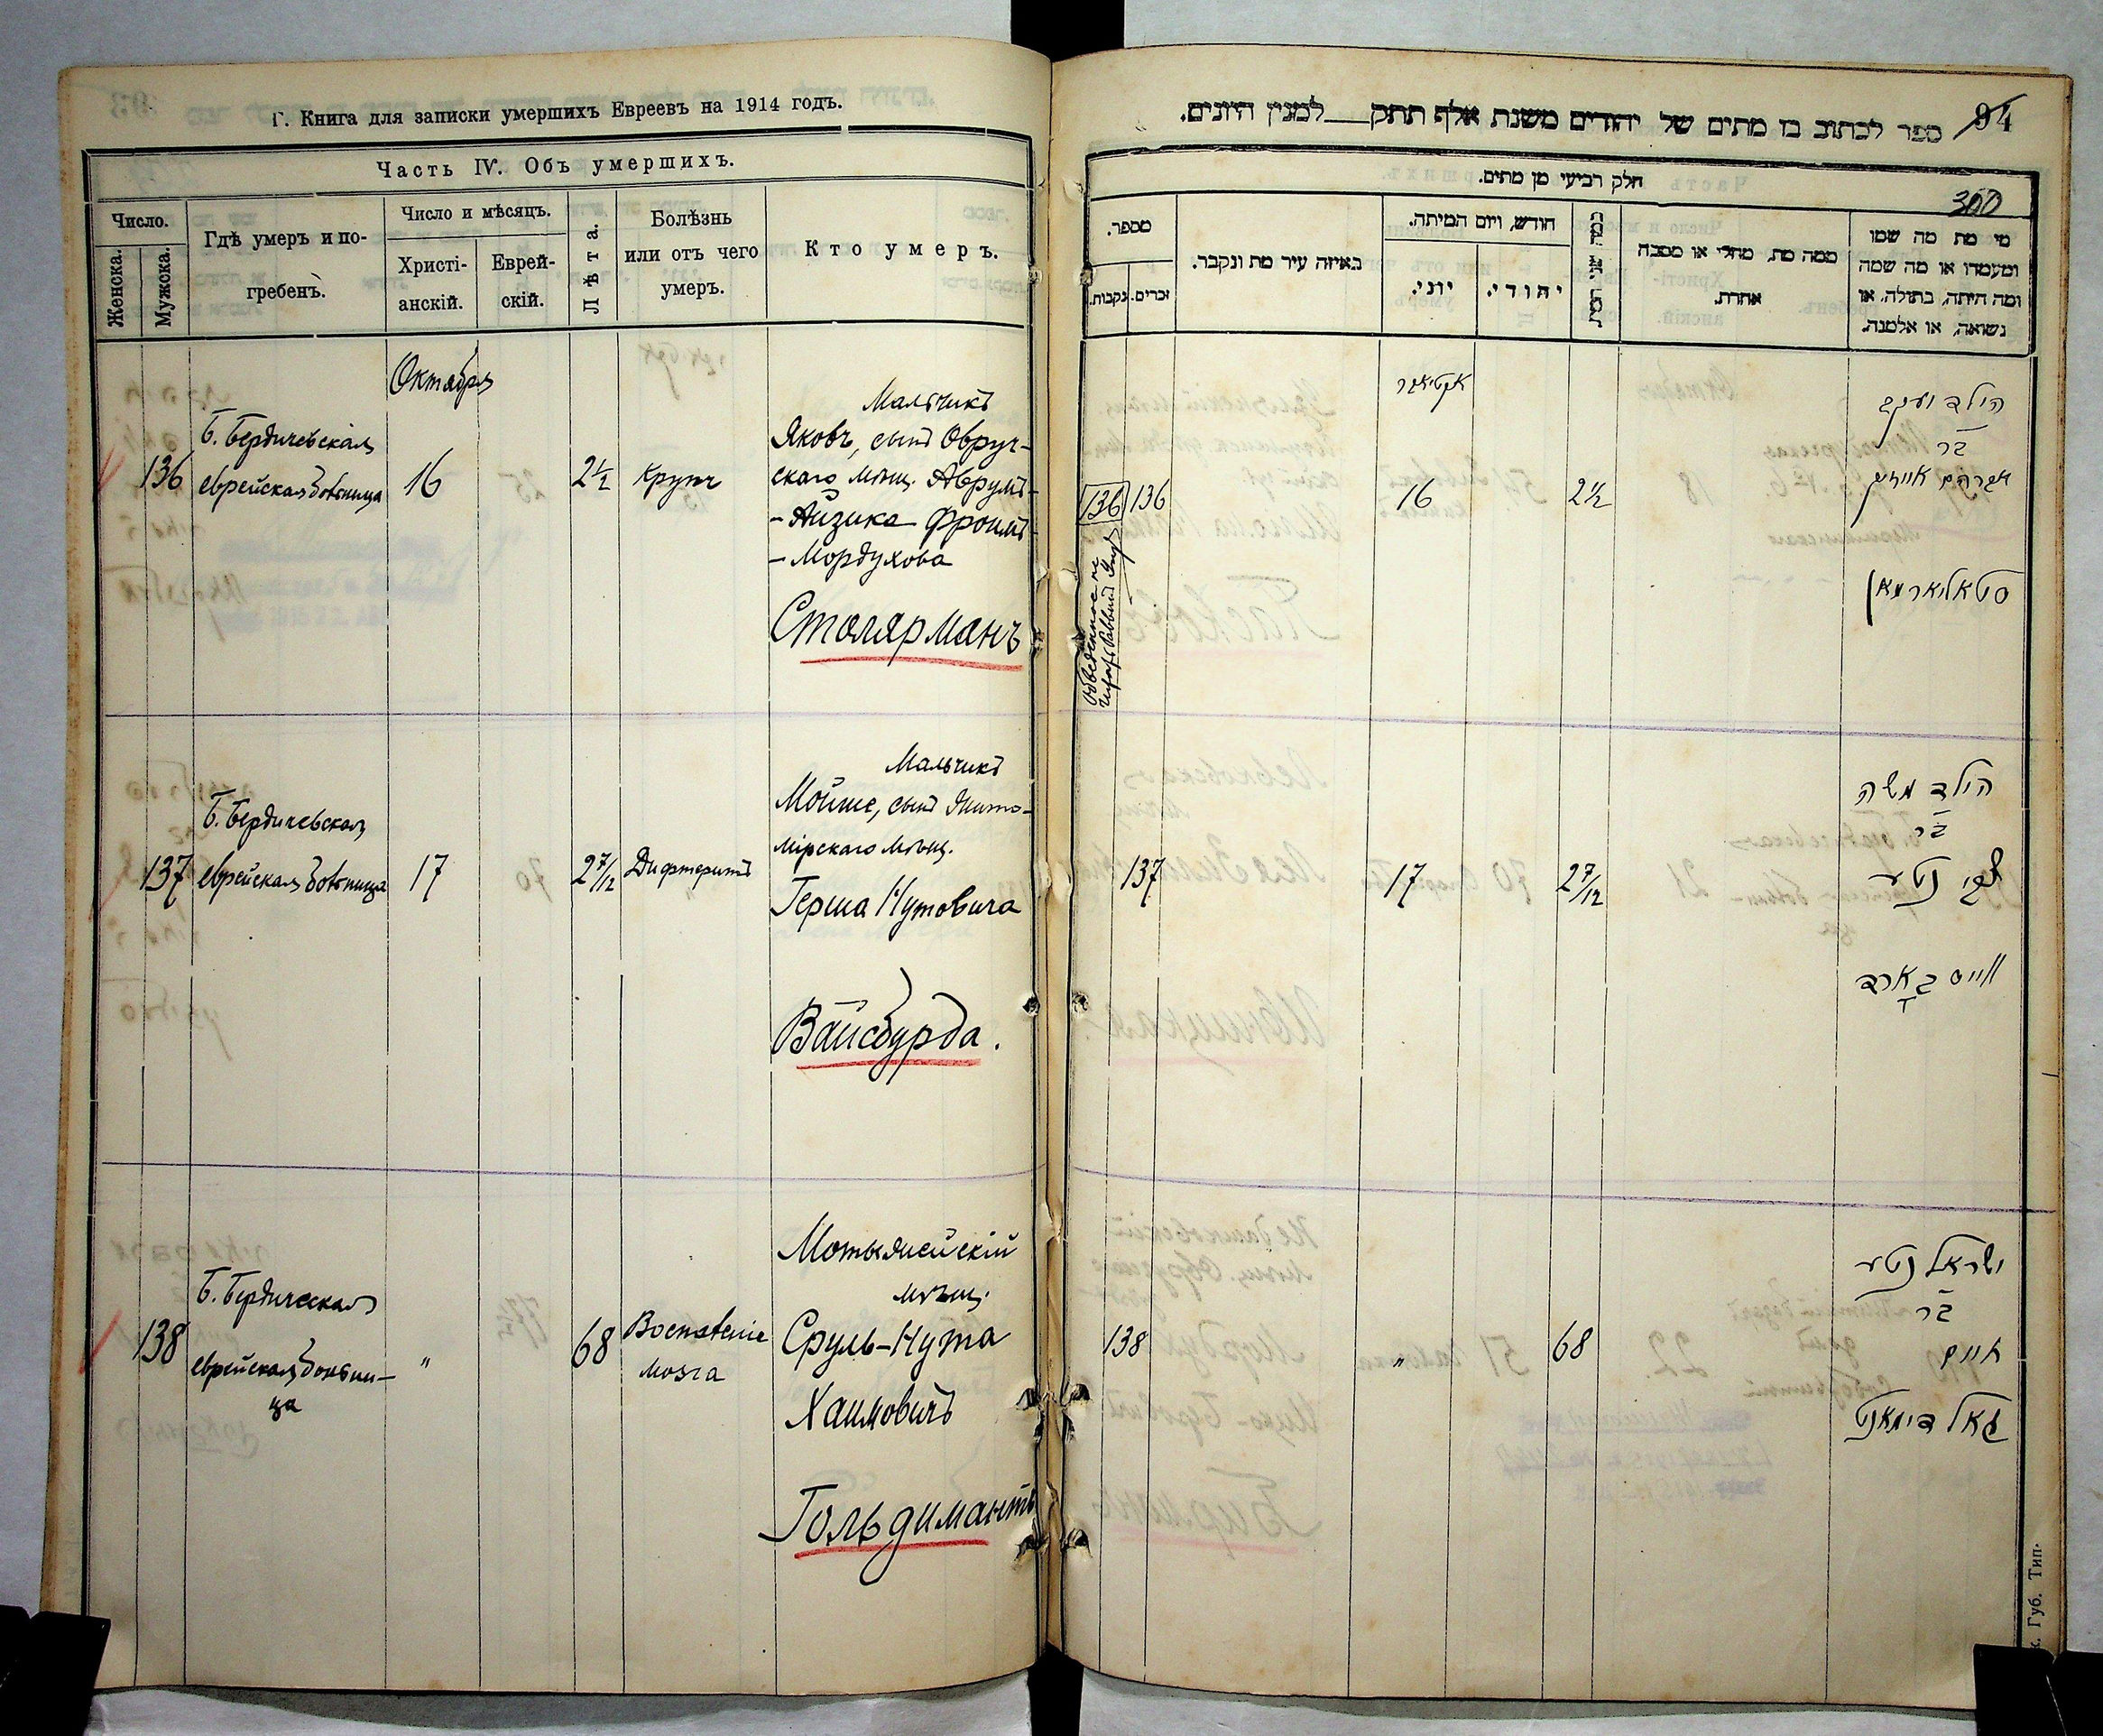 Г. Книга для записки умершихъ Евреевъ на 1914 годъ.
Часть IV. Объ умершихъ.
Число.
Женска.
Мужска.
Гдѣ умеръ и по-
гребенъ.
Число и мѣсяцъ.
Христі-
анскій.
Еврей-
скій.
Лѣта.
Болѣзнь
или отъ чего
умеръ.
Кто умеръ.
Октября
136
Б. Бердичевская
еврейская больница
16
2½
Крупъ
Мальчикъ
Яковъ, сынъ Овруч-
скаго мѣщ. Аврумъ-
-Айзика Фроимъ-
-Мордухова
Столярманъ
137
Б. Бердичевская
еврейская больница
17
2 7/12
Дифтеритъ
Мальчикъ
Мойше, сынъ Жито-
мірскаго мѣщ.
Герша Нутовича
Вайсбурда.
138
Б. Бердическая
еврейская больни-
ца
"
68
Воспаленіе
мозга
мѣщ.
Сруль-Нута
Хаимовичъ
Гольдимантъ
94
ספר לכתוב בו מתים של יהודים משנת אלף תתק__למנין היונים.
300
חלק רביעי מן מתים.
מספר.
נקבות.
זכרים.
באיזה עיר מת ונקבר.
חודש, ויום המיתה.
יוני.
יהודי.
ממה מת, מחלי או מסבה
אחרת.
מי מת מה שמו
ומעמדו או מה שמה
ומה היתה, בתולה, או
נשואה, או אלמנה.
אקטיאבר
136
136
16
2½
הילד יענקב
בר
אברהם אייזיק
סטאליארמאן
137
17
2 7/12
הילד משה
בר
צבי נטע
ווייס בארד
138
"
68
ישראל נטע
בר
חיים
גאלדימאנט
Губ. Тип.